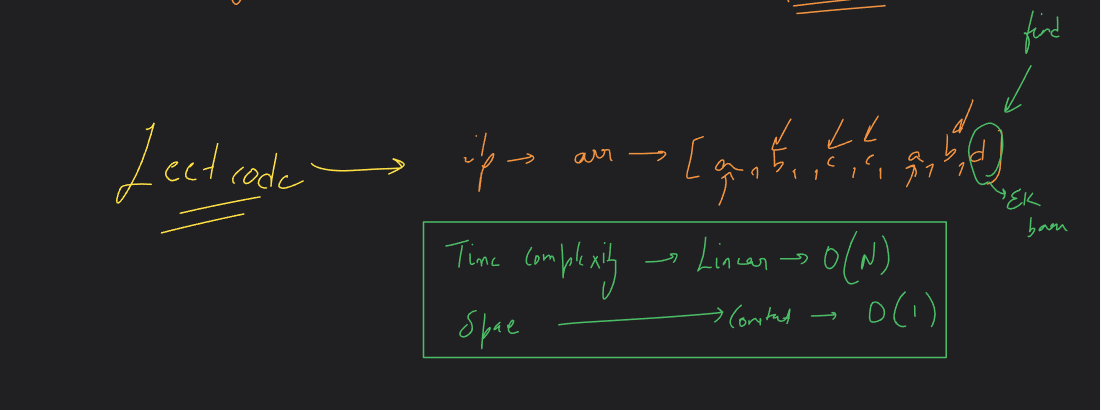 find
Leetcode → i/p → arr → [a, b, c, c, a, b, d]
Ek
baar
Time complexity → Linear → O(N)
Space → Constant → O(1)